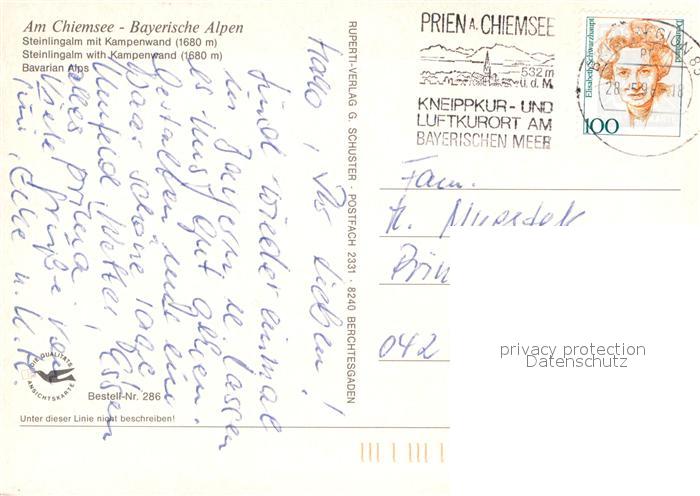 Am Chiemsee - Bayerische Alpen
Steinlingalm mit Kampenwand (1680 m)
Steinlingalm with Kampenwand (1680 m)
Bavarian Alps
Hallo, Ihr Lieben!
Sind wieder einmal
in Bayern u. lassen
es uns gut gehen.
Gestalten uns ein
paar schöne Tage
Umfeld, Wetter, Essen
alles prima!
Viele Grüße von
DIE QUALITÄTS
ANSICHTSKARTE
Bestell-Nr. 286
Unter dieser Linie nicht beschreiben!
RUPERTI-VERLAG G. SCHUSTER - POSTFACH 2331 - 8240 BERCHTESGADEN
PRIEN A. CHIEMSEE
532 m
ü. d. M.
KNEIPPKUR- UND
LUFTKURORT AM
BAYERISCHEN MEER
Elisabeth Schwarzhaupt
Deutsche Bundespost
100
Fam.
042
privacy protection
Datenschutz